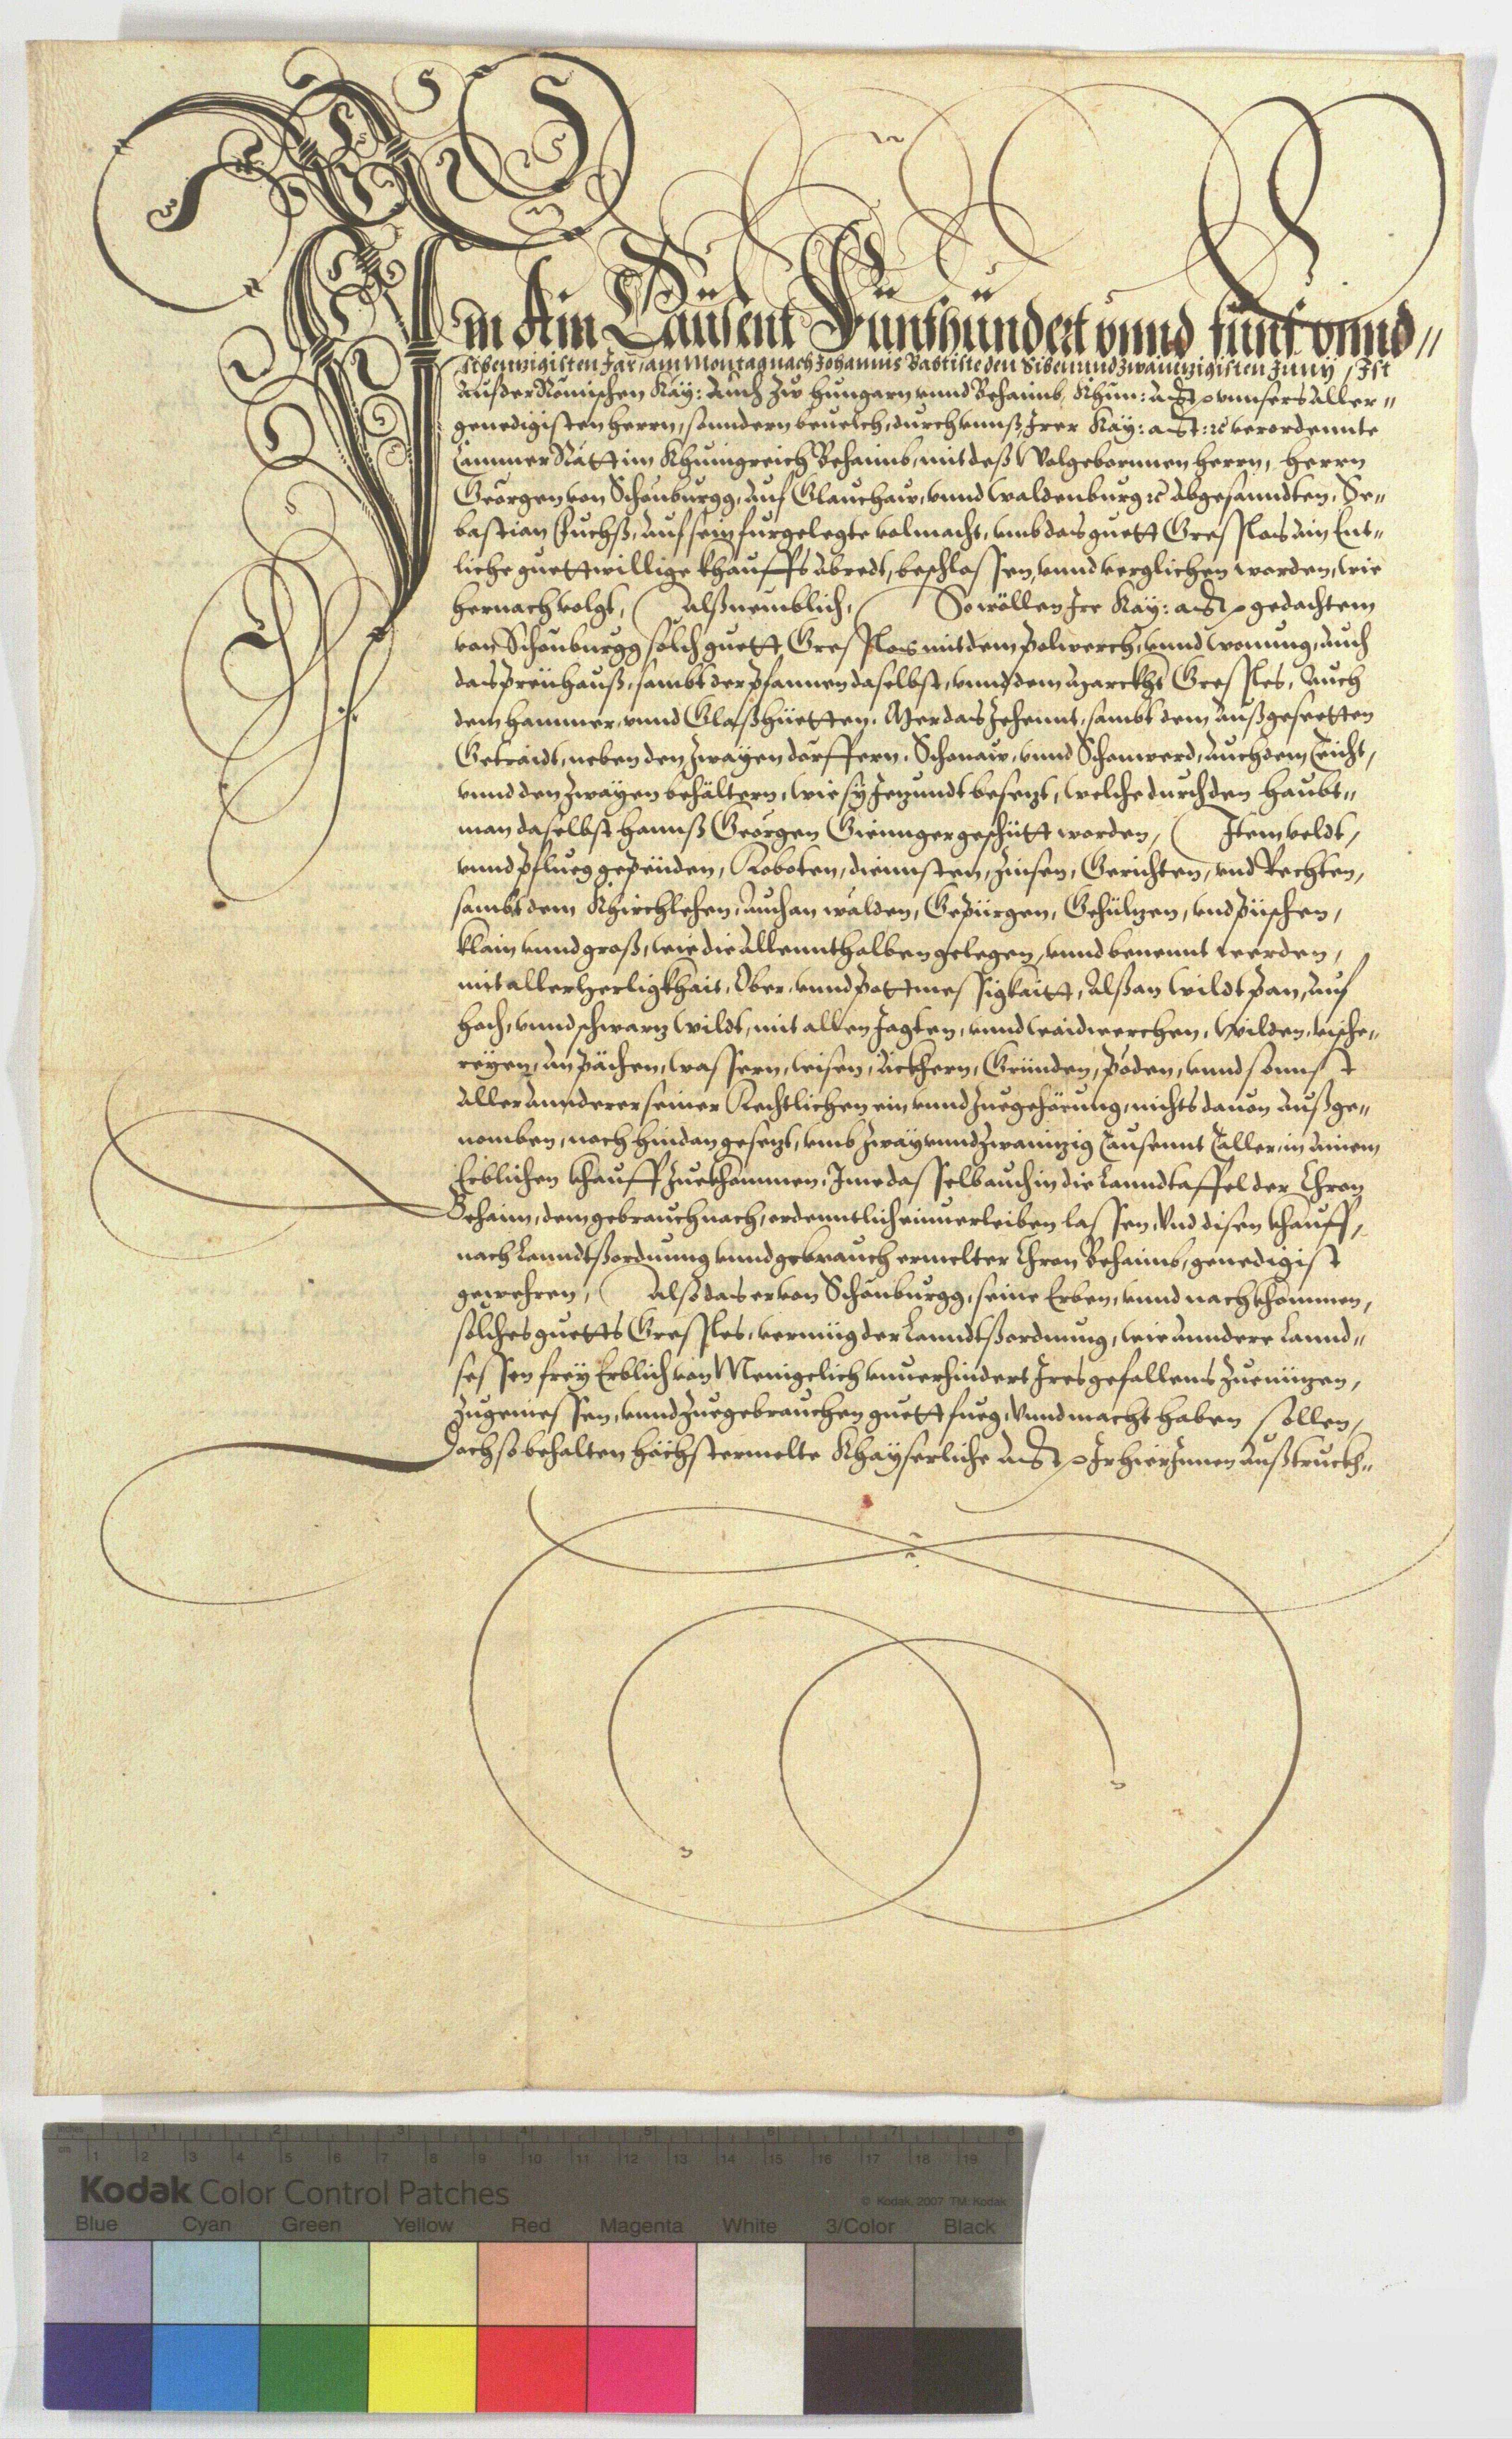 Im Ain Tausent Fünfhündert vnnd fünf vnnd„
sibentzigisten Jar, am Montag nach Johannis Babtiste den Sibenundzwaintzigisten Juny, Ist
Auß der Römischen Kay: Auch zw Hungarn vnnd Behaimb, Khun: Mt: vnnsers Aller„
genedigisten herrn, sonndern beuelch, durch vnnß, Irer Kay: Mt: ꝛc verordennte
Cammer Rätt im Khunigreich Behaimb, mit deß Wolgebornnen herrn, herrn
Georgen von Schönburgg, auf Glauchaw, vnnd Waldenburg ꝛc abgesanndten, Se„
bastian Fuchß, auf sein furgelegte volmacht, vmb das guett Gresslas ain Ent„
liche guettwillige khauffs abredt, beschlossen, vnnd verglichen worden, wie
hernach volgt, Alß nemblich, So wöllen Ire Kay: Mt: gedachtem
von Schönburgg solch guett Gresslas mit dem polwerch, vnnd wonung, auch
das Preuhauß, sambt der Pfannen daselbst, vnnd dem Marckht Gressles, Auch
dem hammer, vnnd Glaßhüetten. Mer das Zehennt, sambt dem Außgeseetten
Getraidt, neben den zwayen dörffern. Schönaw, vnnd Schonwerd, auch dem Teicht,
vnnd den zwayen behältern, wie sy yezundt besezt, welche durch den haubt„
man daselbst Hannß Georgen Gienger geschütt worden, Item veldt,
vnnd pflueg gepeüden, Roboten, diennsten, Zinsen, Gerichten, vnd Rechten,
sambt dem Khirchlehen, Auch an wälden, Gepürgen, Gehültzen, vnd püschen,
klain vnnd groß, wie die Allennthalben gelegen, vnnd benennt werden,
mit aller herligkhait, Ober, vnnd pottmessigkaitt, Alß an wildtpan, auf
hoch, vnnd schwarz wildt, mit allen Jagten, vnnd waidwerchen, wilden, vische„
reyen, an pächen, wassern, wisen, äckhern, Gründen, Pöden, vnnd sonnst
aller annderer seiner Rechtlichen ein vnnd Zuegehörung, nichts dauon außge„
nomben, noch hindan gesezt, vmb zway vnnd zwaintzig Tausennt Taller, in ainem
Erblichen khauff zuekhommen, Ime dasselb auch in die Lanndtaffel der Chron
Behaim, dem gebrauch nach, ordenntlich einuerleiben lassen, Vnd disen khauff,
nach Lanndtßordnung vnnd gebrauch ermelter Chron Behaimb, genedigist
gewehren, Also das er von Schönburgg, seine Erben, vnnd nachkhommen,
solches guetts Gressles, vermüg der Lanndtßordnung, wie anndere Lannd„
sessen frey Erblich von Menigelich vnuerhindert Ires gefallens zuenützen,
zugeniessen, vnnd zuegebrauchen guett fueg, Vnnd macht haben sollen,
Doch so behalten höchstermelte Khayserliche Mt: Ir hierInnen außtruckh„
Kodak Color Control Patches
© Kodak, 2007 TM: Kodak
Blue Cyan Green Yellow Red Magenta White 3/Color Black